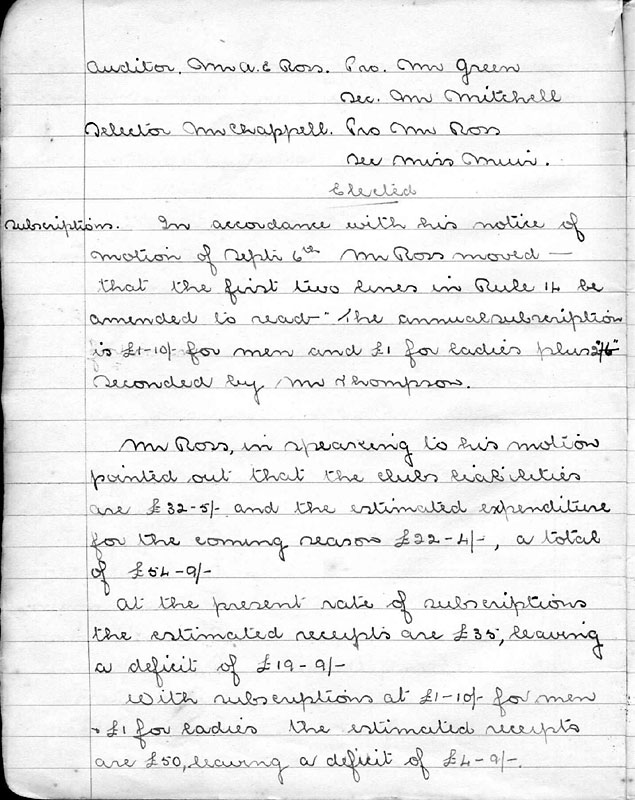 Auditor. Mr A. E Ross. Pro. Mr Green
Sec. Mr Mitchell
Selector Mr Chappell. Pro Mr Ross
Sec Miss Muir.
Elected
Subscriptions. In accordance with his notice of
motion of Sept 6th Mr Ross moved —
that the first two lines in Rule 14 be
amended to read "The annual subscription
is £1-10/- for men and £1 for ladies plus 2/6"
Seconded by Mr Thompson.
Mr Ross, in speaking to his motion
pointed out that the clubs liabilities
are £32-5/- and the estimated expenditure
for the coming season £22-4/-, a total
of £54-9/-
At the present rate of subscriptions
the estimated receipts are £35, leaving
a deficit of £19-9/-
With subscriptions at £1-10/- for men
& £1 for ladies the estimated receipts
are £50, leaving a deficit of £4-9/-.